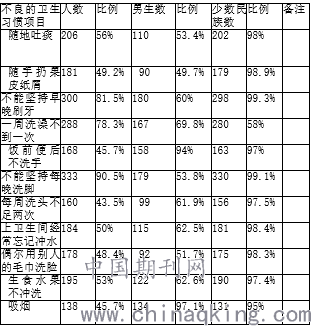 不良的卫生习惯项目 人数 比例 男生数 比例 少数民族数 比例 备注
随地吐痰 206 56% 110 53.4% 202 98%
随手扔果皮纸屑 181 49.2% 90 49.7% 179 98.9%
不能坚持早晚刷牙 300 81.5% 180 60% 298 99.3%
一周洗澡不到一次 288 78.3% 167 69.8% 280 58%
饭前便后不洗手 168 45.7% 158 94% 163 97%
不能坚持每晚洗脚 333 90.5% 179 53.8% 330 99.1%
每周洗头不足两次 160 43.5% 99 61.9% 156 97.5%
上卫生间经常忘记冲水 184 50% 115 62.5% 181 98.4%
偶尔用别人的毛巾洗脸 178 48.4% 92 51.7% 175 98.3%
生食水果不冲洗 195 53% 122 62.6% 190 97.4%
吸烟 138 45.7% 134 97.1% 131 95%
中国期刊网
www.chinaqking.com